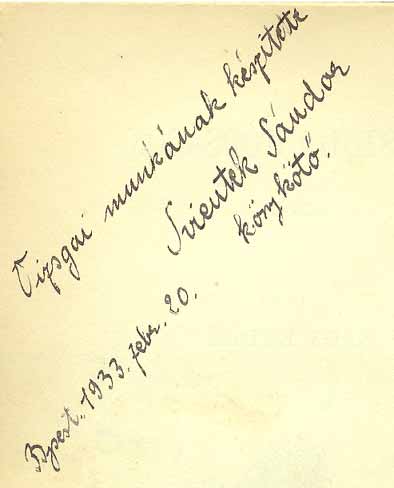 Vizsgai munkának készítette
Svientek Sándor
könykötő.
Bpest. 1933. febr. 20.